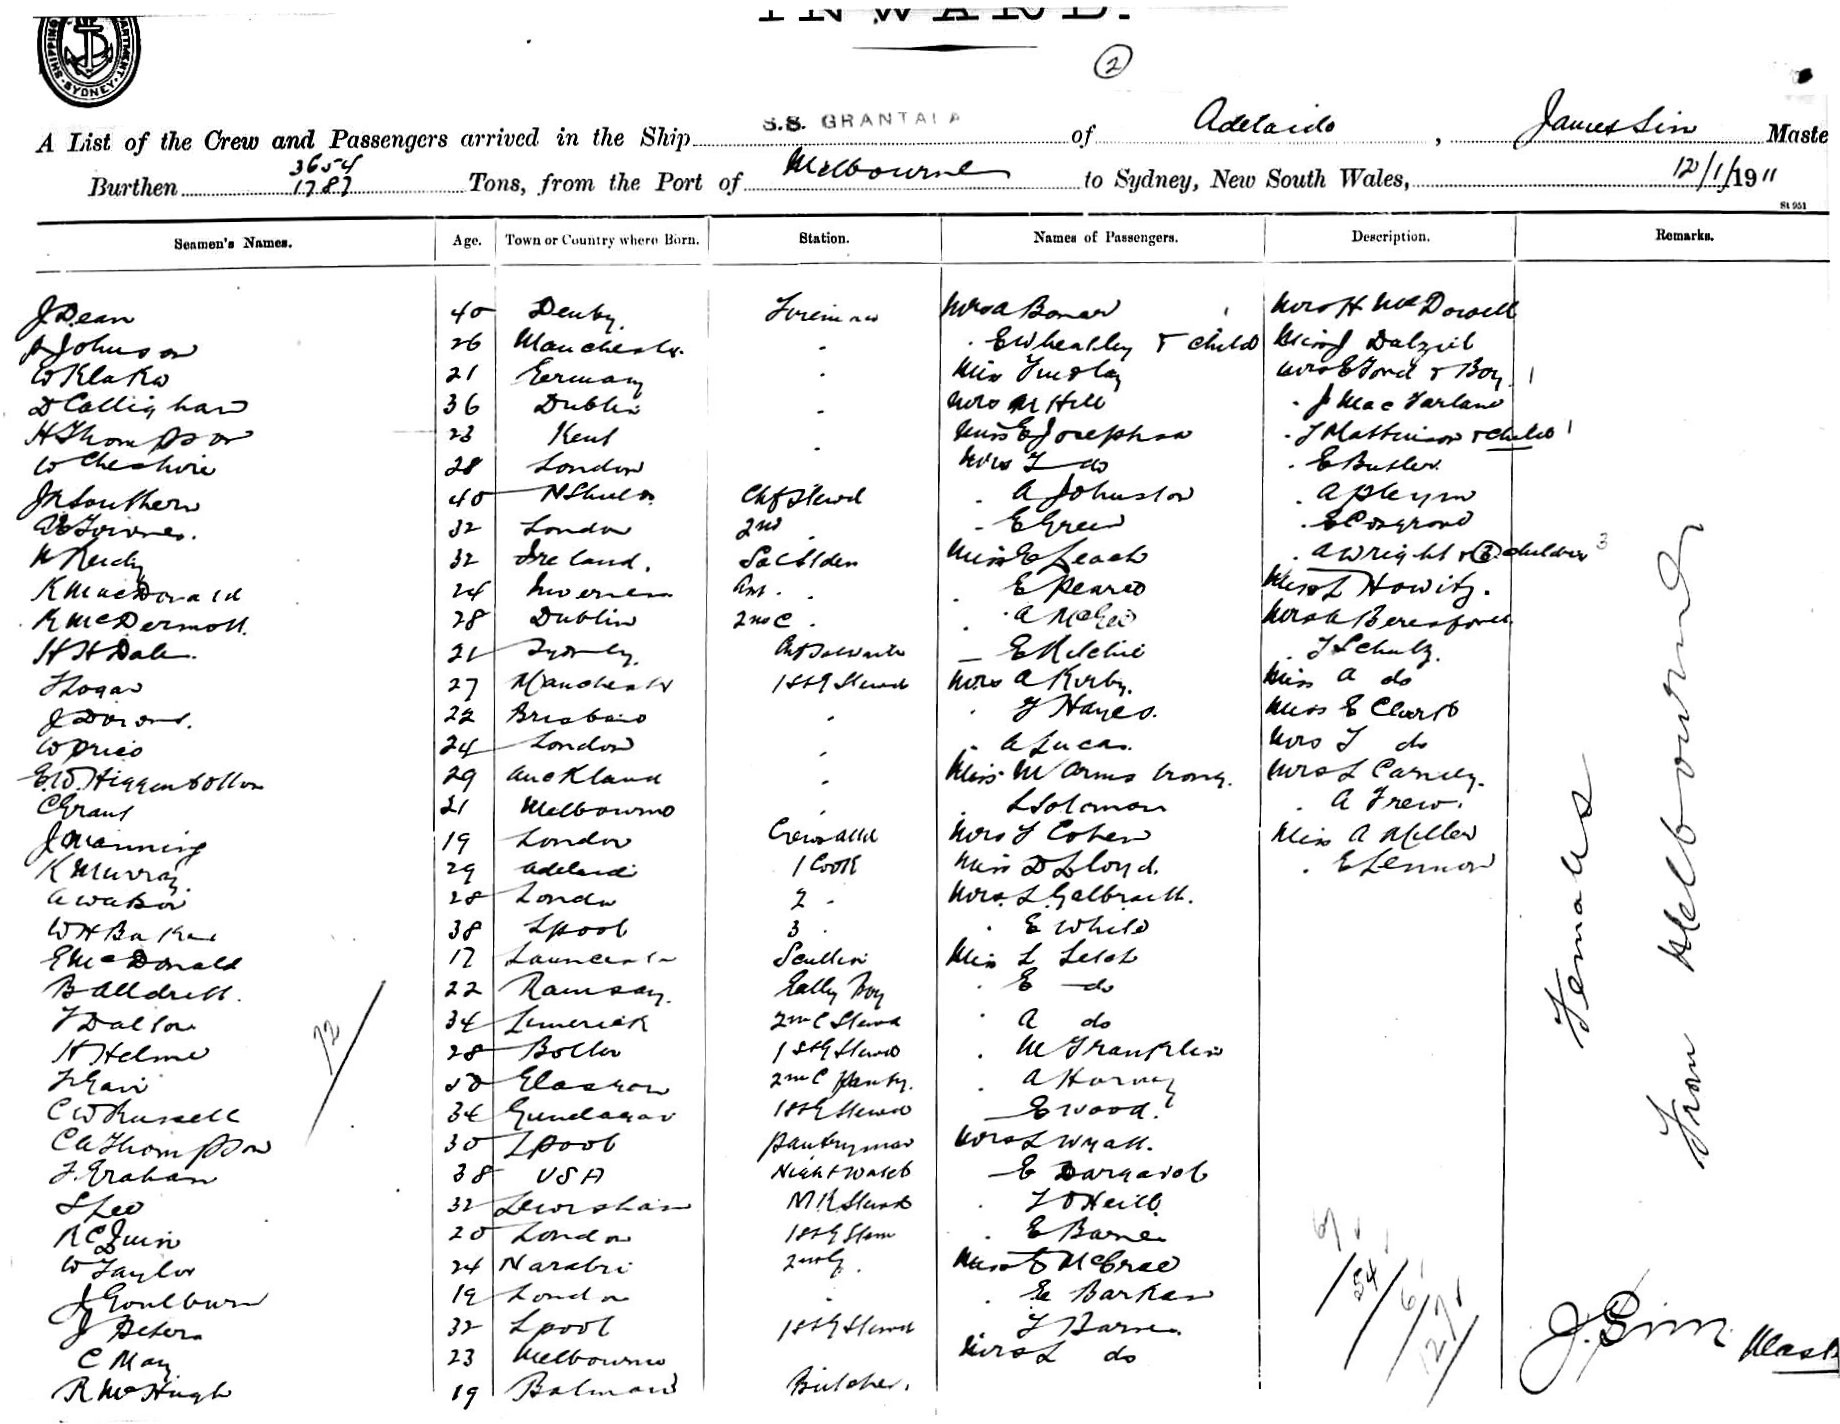 INWARD.
SHIPPING DEPARTMENT SYDNEY
2
A List of the Crew and Passengers arrived in the Ship S.S. GRANTALA of Adelaide, James Sim Maste
Burthen 3654 1787 Tons, from the Port of Melbourne to Sydney, New South Wales, 12/1/1911
St 951
Seamen's Names. Age. Town or Country where Born. Station. Names of Passengers. Description. Remarks.
J Dean 40 Denby Fireman Mrs A Bonar Mrs H McDowell
A Johnson 26 Manchester " E Wheatley & child Miss J Dalziel
W Klaka 21 Germany " Miss Findlay Mrs E Ford & Boy 1
D Callighan 36 Dublin " Mrs M Hill " J MacFarland
H Thompson 23 Kent " Miss E Josephson " F Mathieson & child 1
W Cheshire 28 London " Mrs F do " E Butler
J R Southern 40 N Shields Chf Stewd " A Johnston " A
32 London 2nd " " E Green " E Cosgrove
Reidy 32 Ireland. Miss E Leach " A Wright & 3 children 3
K MacDonald 24 Inverness " E Pearce Miss L Howitz.
K McDermott. 28 Dublin 2nd C " " A McGee Mrs A Beresford
H H Dale. 21 Sydney. " E Ritchie " F Schulz.
F Logan 27 Manchester 1st G Stewd Mrs A Kirby. Miss A do
J 22 Brisbane " " F Hayes. Miss E Clarst
W Price 24 London " " A Lucas. Mrs F do
E W Higgenbottom 29 Auckland " Miss M Armstrong. Mrs L Carney.
C Grant 21 Melbourne " " L Solomon " A Frew.
J Manning 19 London Crews attd Mrs F Cohen Miss A Miller
K Murray 29 Adelaide 1 Cook Miss D Lloyd. " E Lennon
A Watson 28 London 2 " Mrs. L Galbraith.
W H Baker 38 Lpool 3 " " E White
E McDonald 17 Launceston Scullion Miss L Leich
B Alldritt. 22 Ramsay. Gally Boy " E do
F Dalton 34 Limerick 2nd C Stewd " A do
H Helme 28 Bolton 1st G Stewd " M Franklin
50 Glasgow 2nd C Pantry. " A Harvey
C W Russell 34 Gundagai 1st G Stewd " E Wood.
C A Thompson 30 Lpool Pantryman Mrs L Wyatt.
F. Graham 38 USA Night Watch " E Dargavel
S Lee 32 Lewisham M R Stewd " F O'Neill.
R C Quin 20 London 1st G Stew " E Barnes
W Taylor 24 Narabri 2nd G. Miss E McCrae
J Goulburn 19 London " " E Barker
J Peters 32 Lpool 1st G Stewd " F Barnes
C May 23 Melbourne Mrs L do
R McHugh 19 Balmain Butcher.
72/
Females
From Melbourne
6/
54/
6/
127/
J. Sim Mast